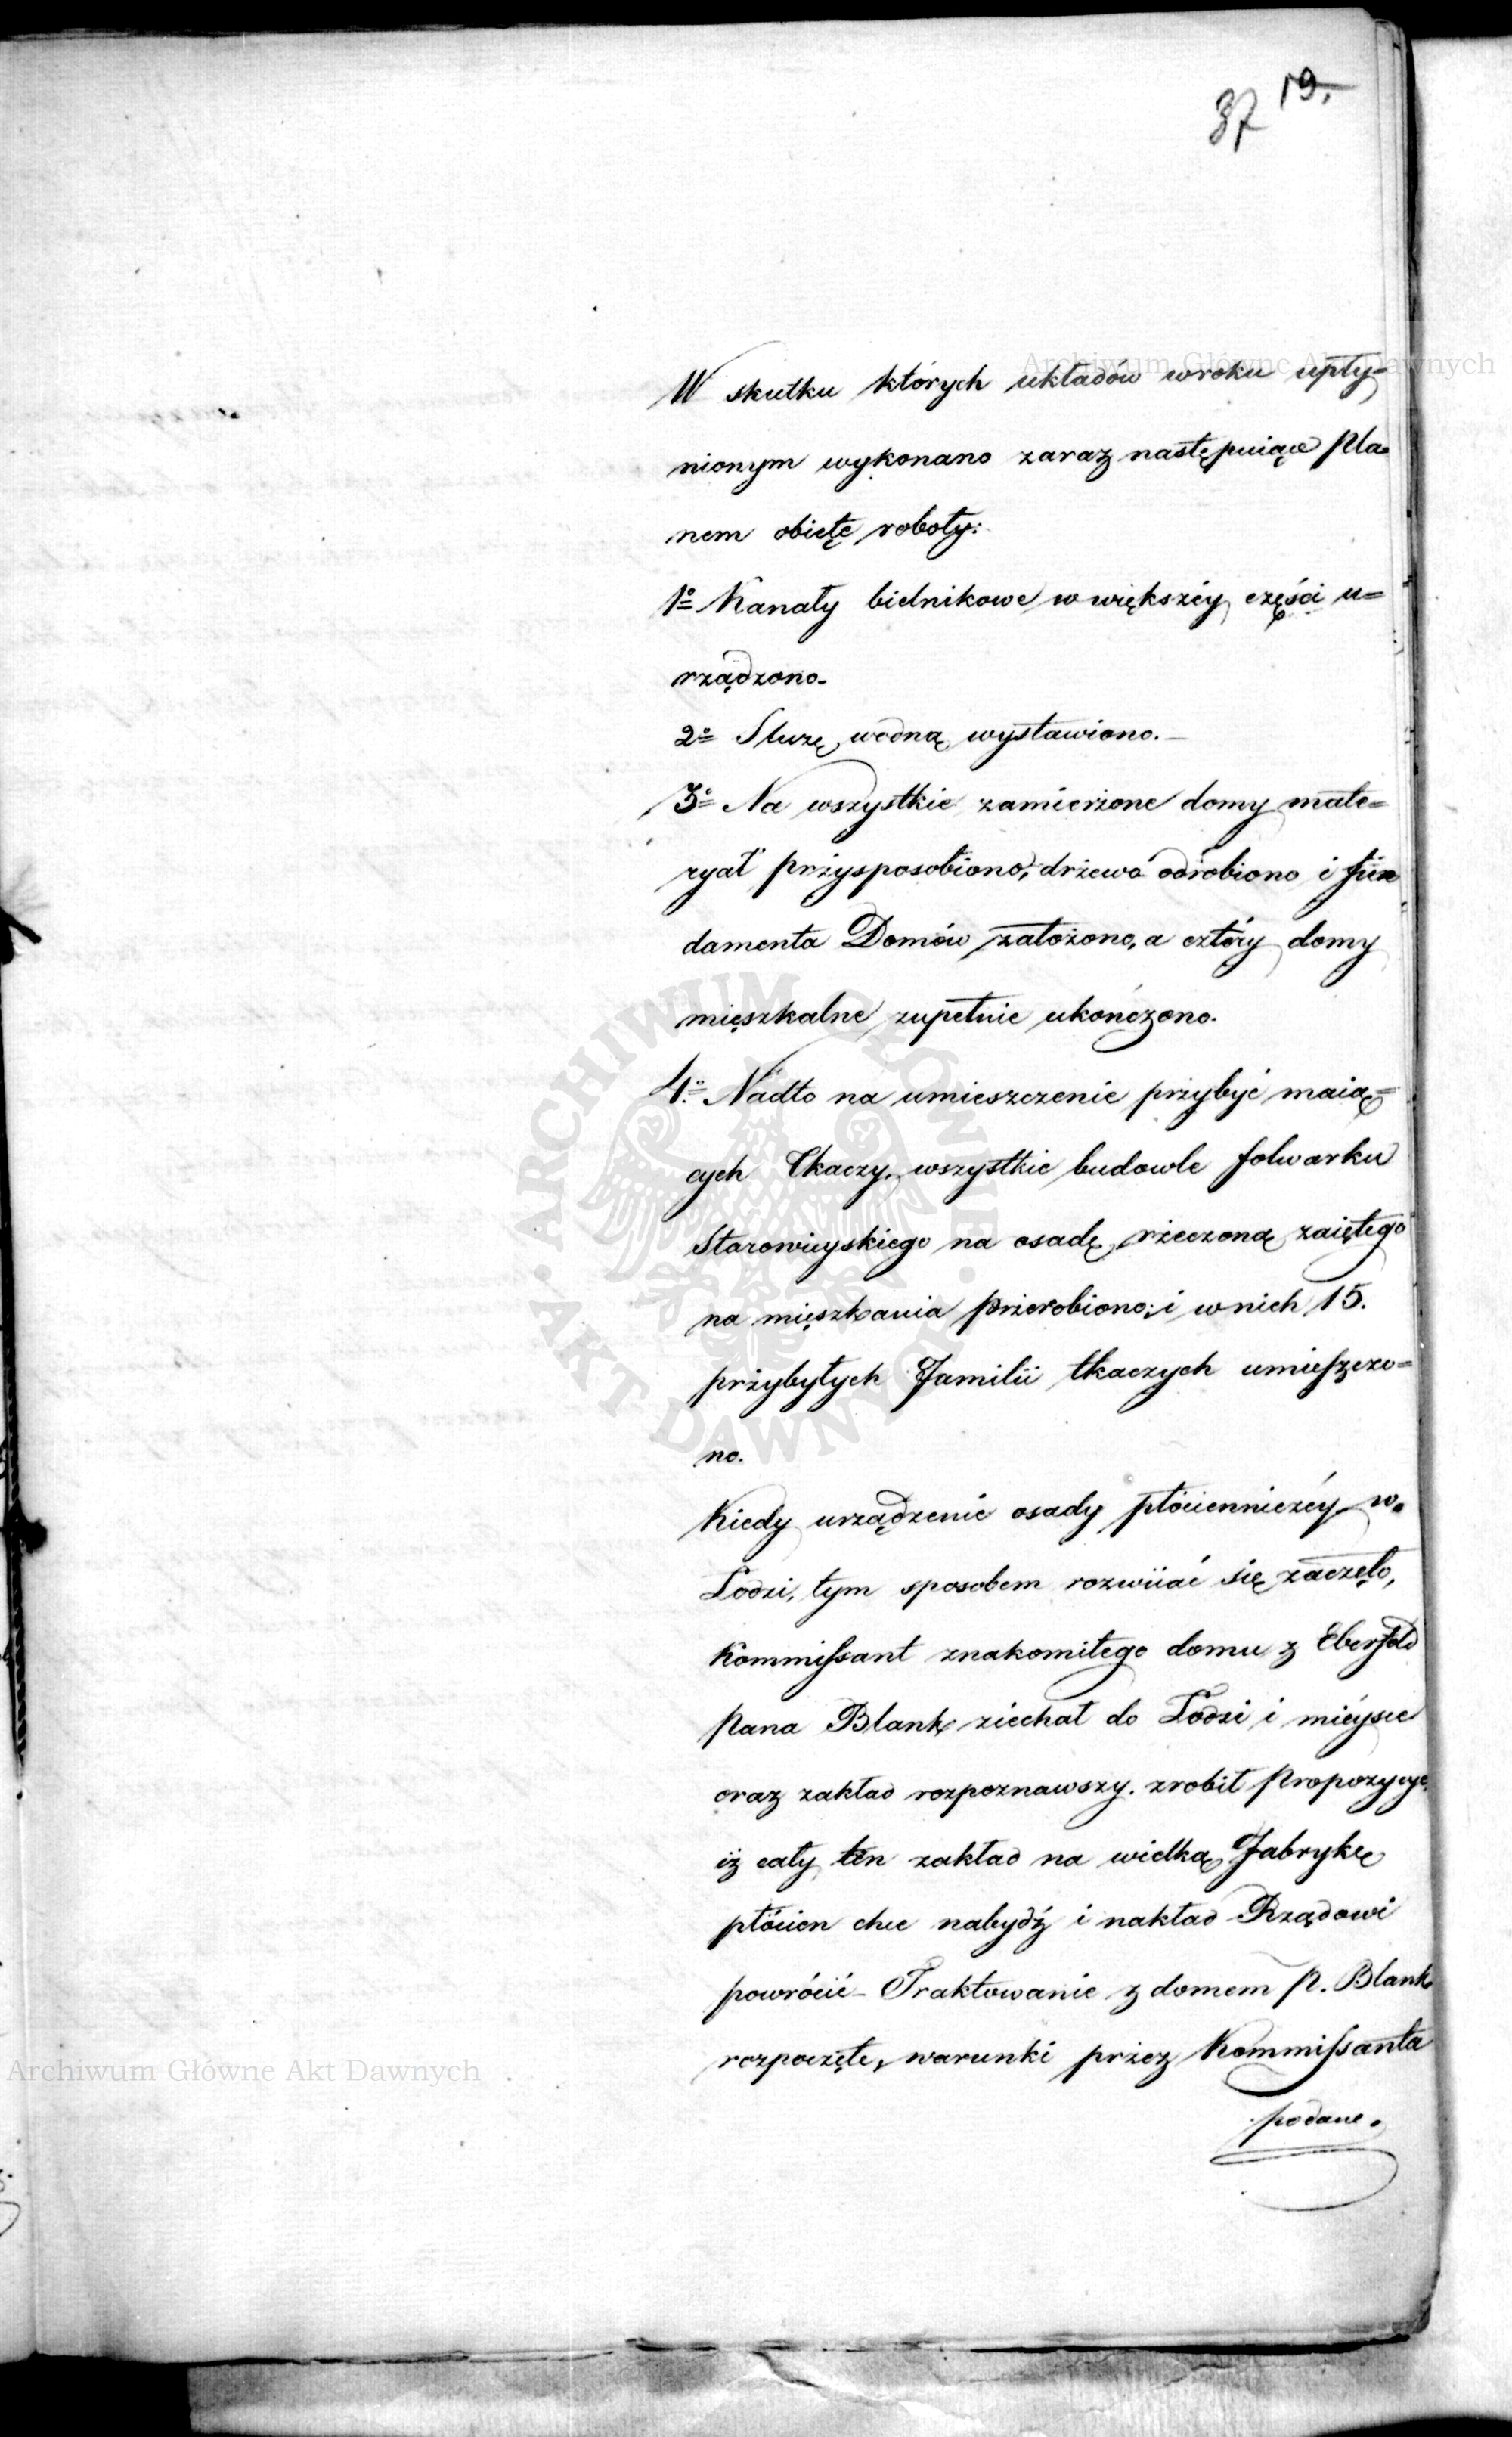 37 19.
Archiwum Główne Akt Dawnych
W skutku których układów w roku upły=
nionym wykonano zaraz następuiące pla=
nem obięte roboty:
1º Kanały bielnikowe w większéy części u=
rządzono.
2º Sluzę wodną wystawiono.
3º Na wszystkie zamierzone domy mate=
ryał przysposobiono, drzewo odrobiono i fun
damenta Domów założono, a cztéry domy
mięszkalne zupełnie ukończono.
4º Nadto na umieszczenie przybyć maią=
cych Tkaczy, wszystkie budowle folwarku
Starowieyskiego na osadę rzeczoną zaiętego
na mięszkania przerobiono; i w nich 15.
przybyłych Familii tkaczych umieszczo=
no.
Kiedy urządzenie osady płócienniczéy w
Łodzi, tym sposobem rozwiiać się zaczęło,
Kommissant znakomitego domu z Eberfeld
Pana Blank ziechał do Łodzi i mieysce
oraz zakład rozpoznawszy. zrobił propozycyę,
iż cały ten zakład na wielką Fabrykę
płócien chce nabydź i nakład Rządowi
powrócić – Traktowanie z domem P. Blank
rozpoczęte, warunki przez Kommissanta
podane.
ARCHIWUM GŁÓWNE · AKT DAWNYCH ·
Archiwum Główne Akt Dawnych